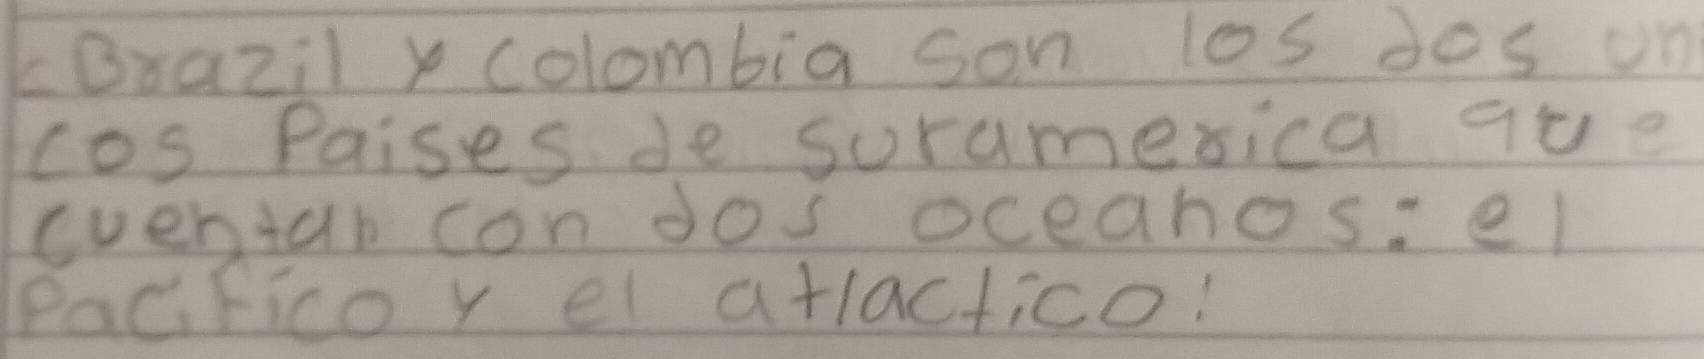 -Brazil y colombia son los dos un
cos Paises de suramerica que
cuentan con dos oceanos: el
Pacifico y el atlactico: